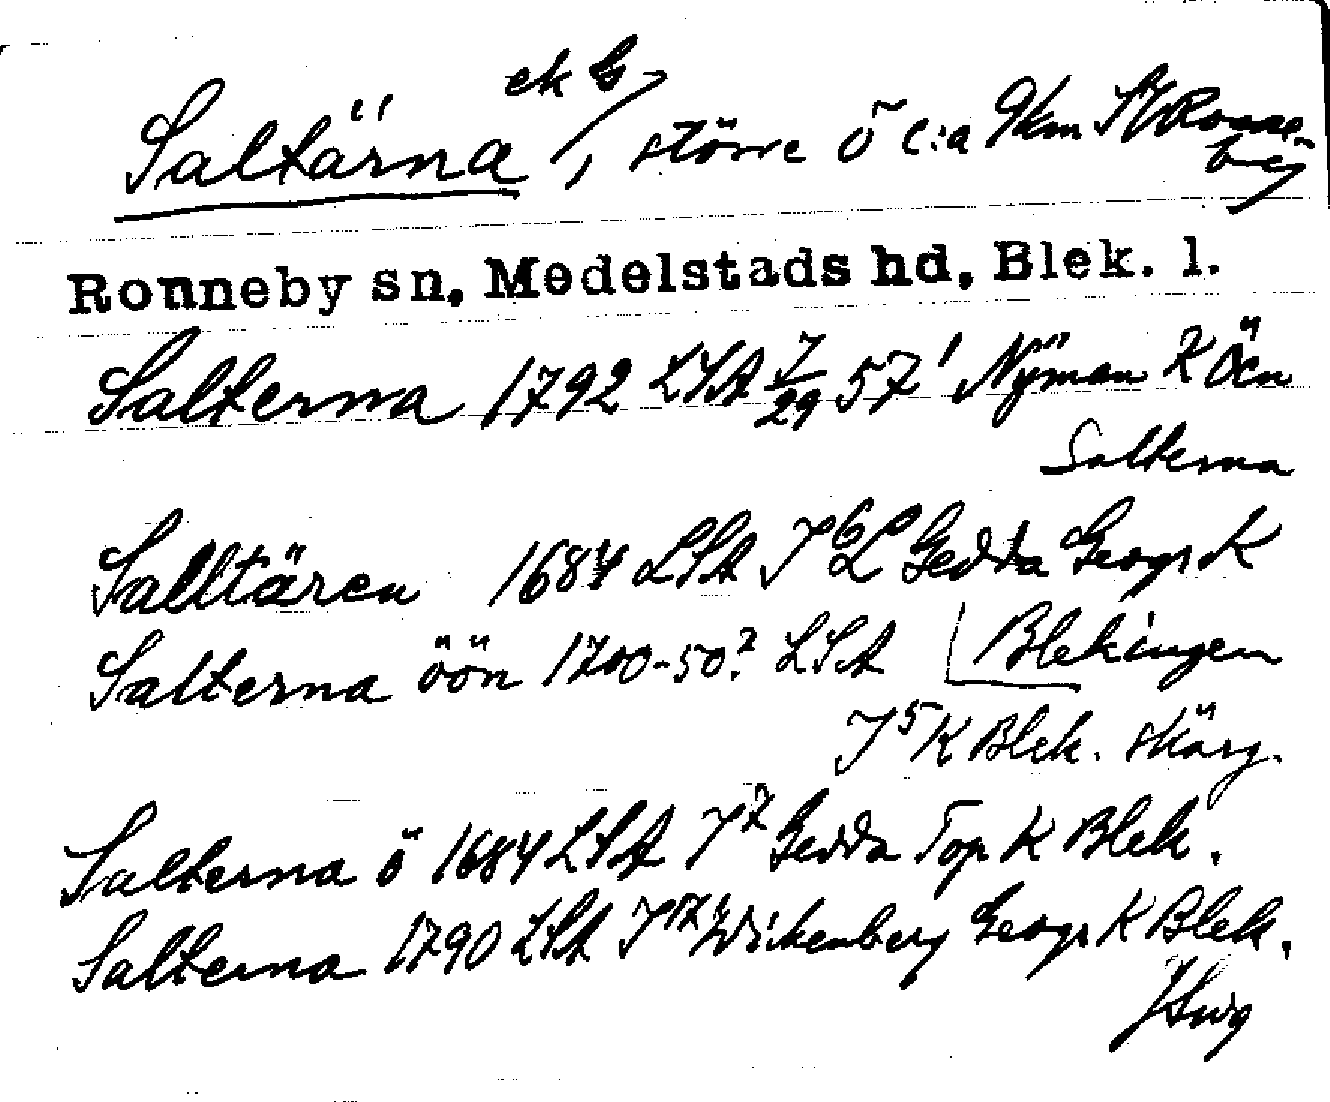 Saltärna ek G, större ö c:a 9km SV Ronne-
by
Ronneby sn, Medelstads hd, Blek. l.
Salterna 1792 LSA 7/29 57' Nyman K Öen
Salterna
Salltären 1684 LSA J 6 L Gedda Geogr K
Blekingen
Salterna öön 1700-50? LSA
J 5 K Blek. skärg.
Salterna ö 1684 LSA J 7 Gedda Top K Blek.
Salterna 1790 LSA J Wikenberg Geogr K Blek.